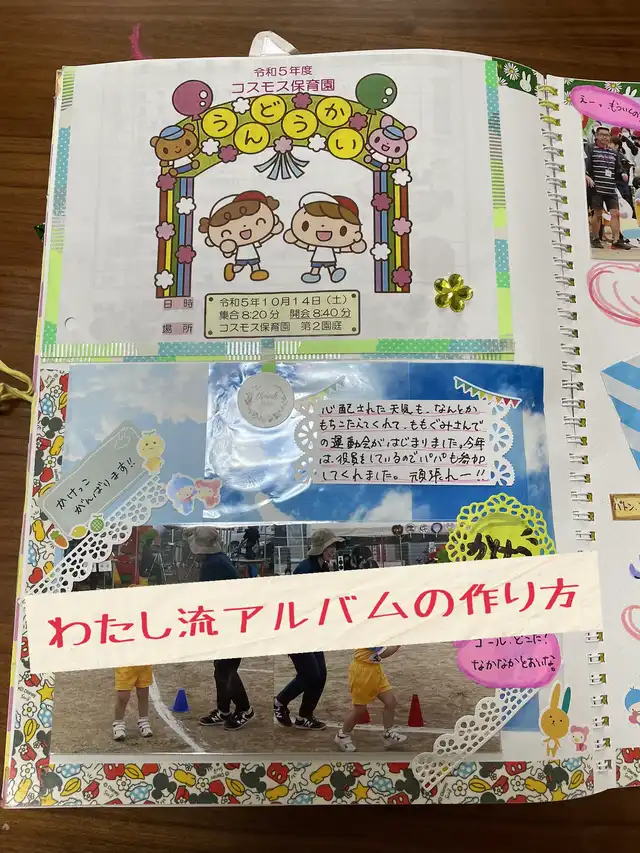 令和5年度
コスモス保育園
うんどうかい
日時
令和5年10月14日（土）
集合8:20分 開会8:40分
場所
コスモス保育園 第2園庭
心配された天気も、なんとか
もちこたえてくれて、ももぐみさんで
の運動会がはじまりました。今年
は、役員をしているのでパパも参加
してくれました。頑張れー!!
かけっこ
がんばります!!
わたし流アルバムの作り方
ゴール、どこだ?
なかなかとおいな。